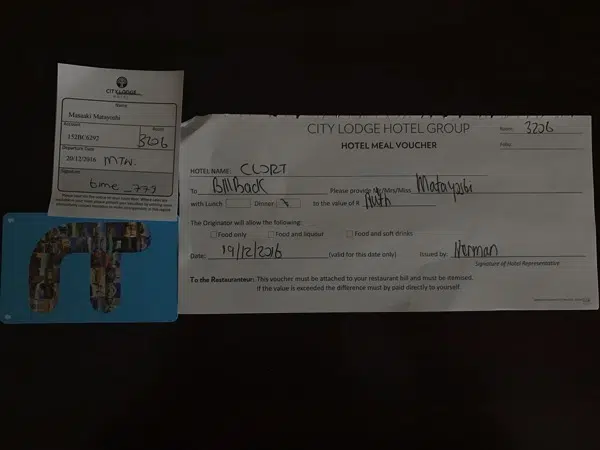 CITY LODGE
HOTEL
Name
Masaaki Matayoshi
Account
Room
152BC6292
3206
Departure Date
20/12/2016 MTN.
Signature
time_779
CITY LODGE HOTEL GROUP
Room: 3206
HOTEL MEAL VOUCHER
Folio:
HOTEL NAME: CLORT
To Billback Please provide Mr/Mrs/Miss
with Lunch Dinner X to the value of R Auth
The Originator will allow the following:
Food only Food and liqueur Food and soft drinks
Date: 19/12/2016 (valid for this date only) Issued by: Herman
Signature of Hotel Representative
To the Restauranteur: This voucher must be attached to your restaurant bill and must be itemised.
If the value is exceeded the difference must by paid directly to yourself.